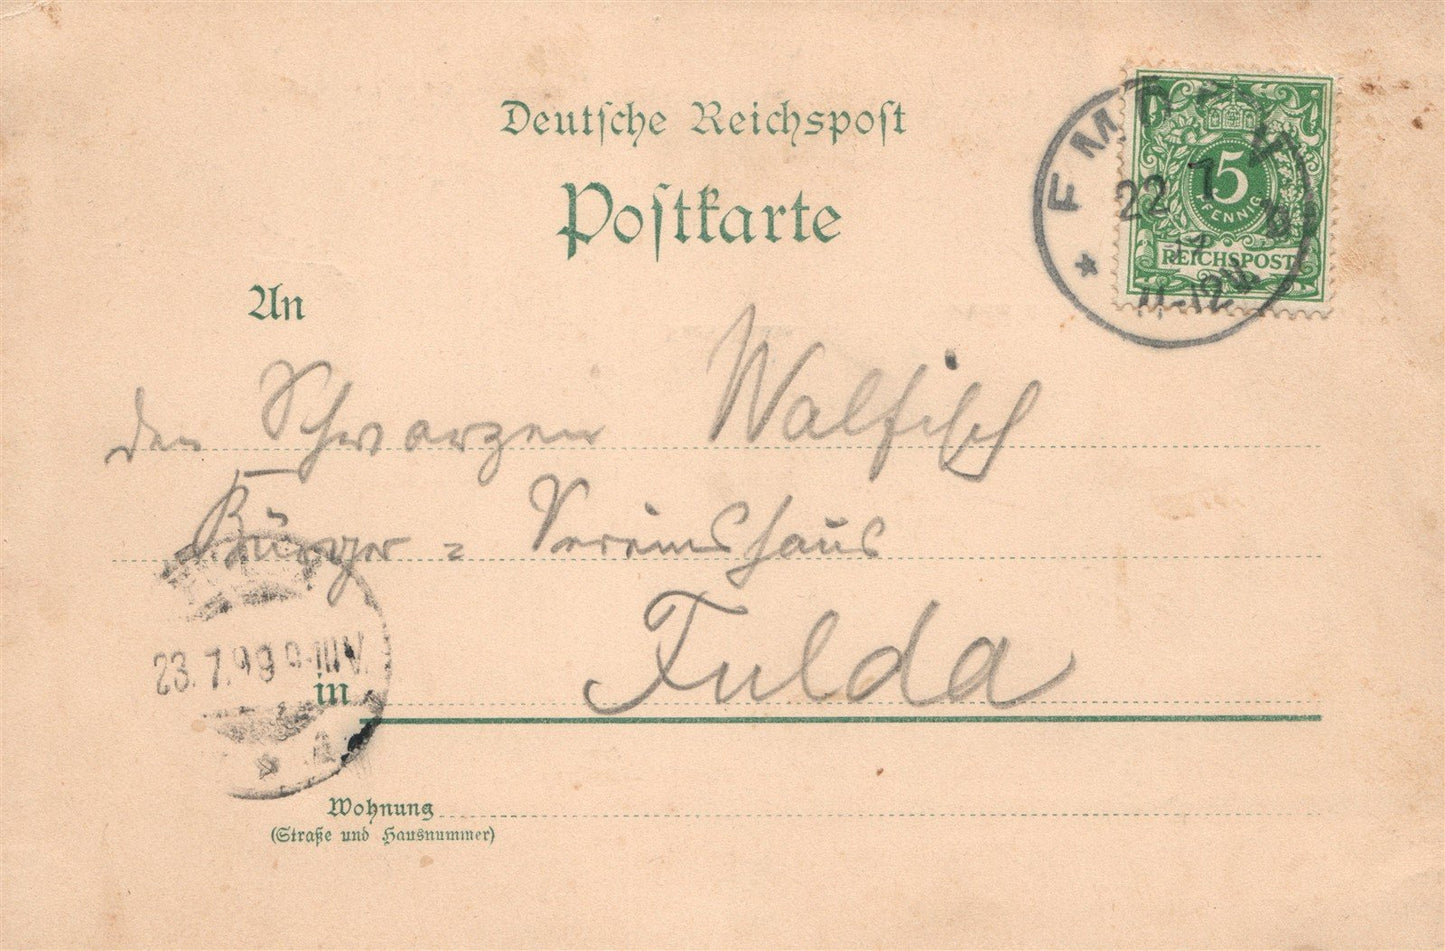 Deutsche Reichspost
Postkarte
EMDEN
22 7
11-12V.
5
PFENNIG
REICHSPOST
An
den Schwarzen Walfisch
Bürger = Vereinshaus
in Fulda
23. 7. 99
Wohnung
(Straße und Hausnummer)